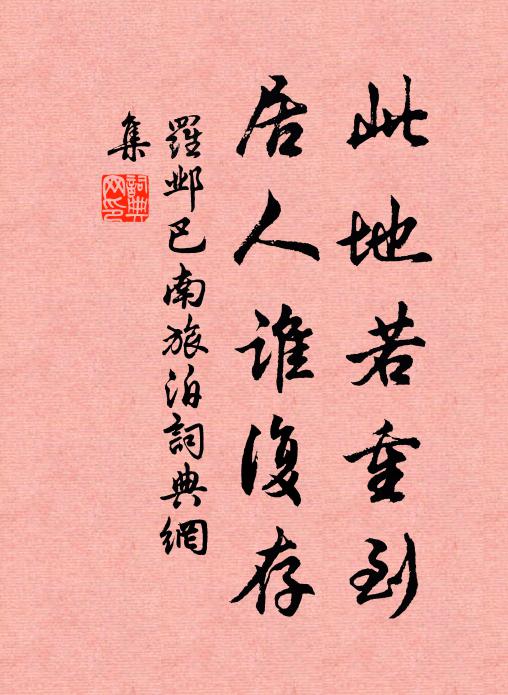 此地若重到
居人誰復存
羅邺巴南旅泊詞典網
集
詞典
网印